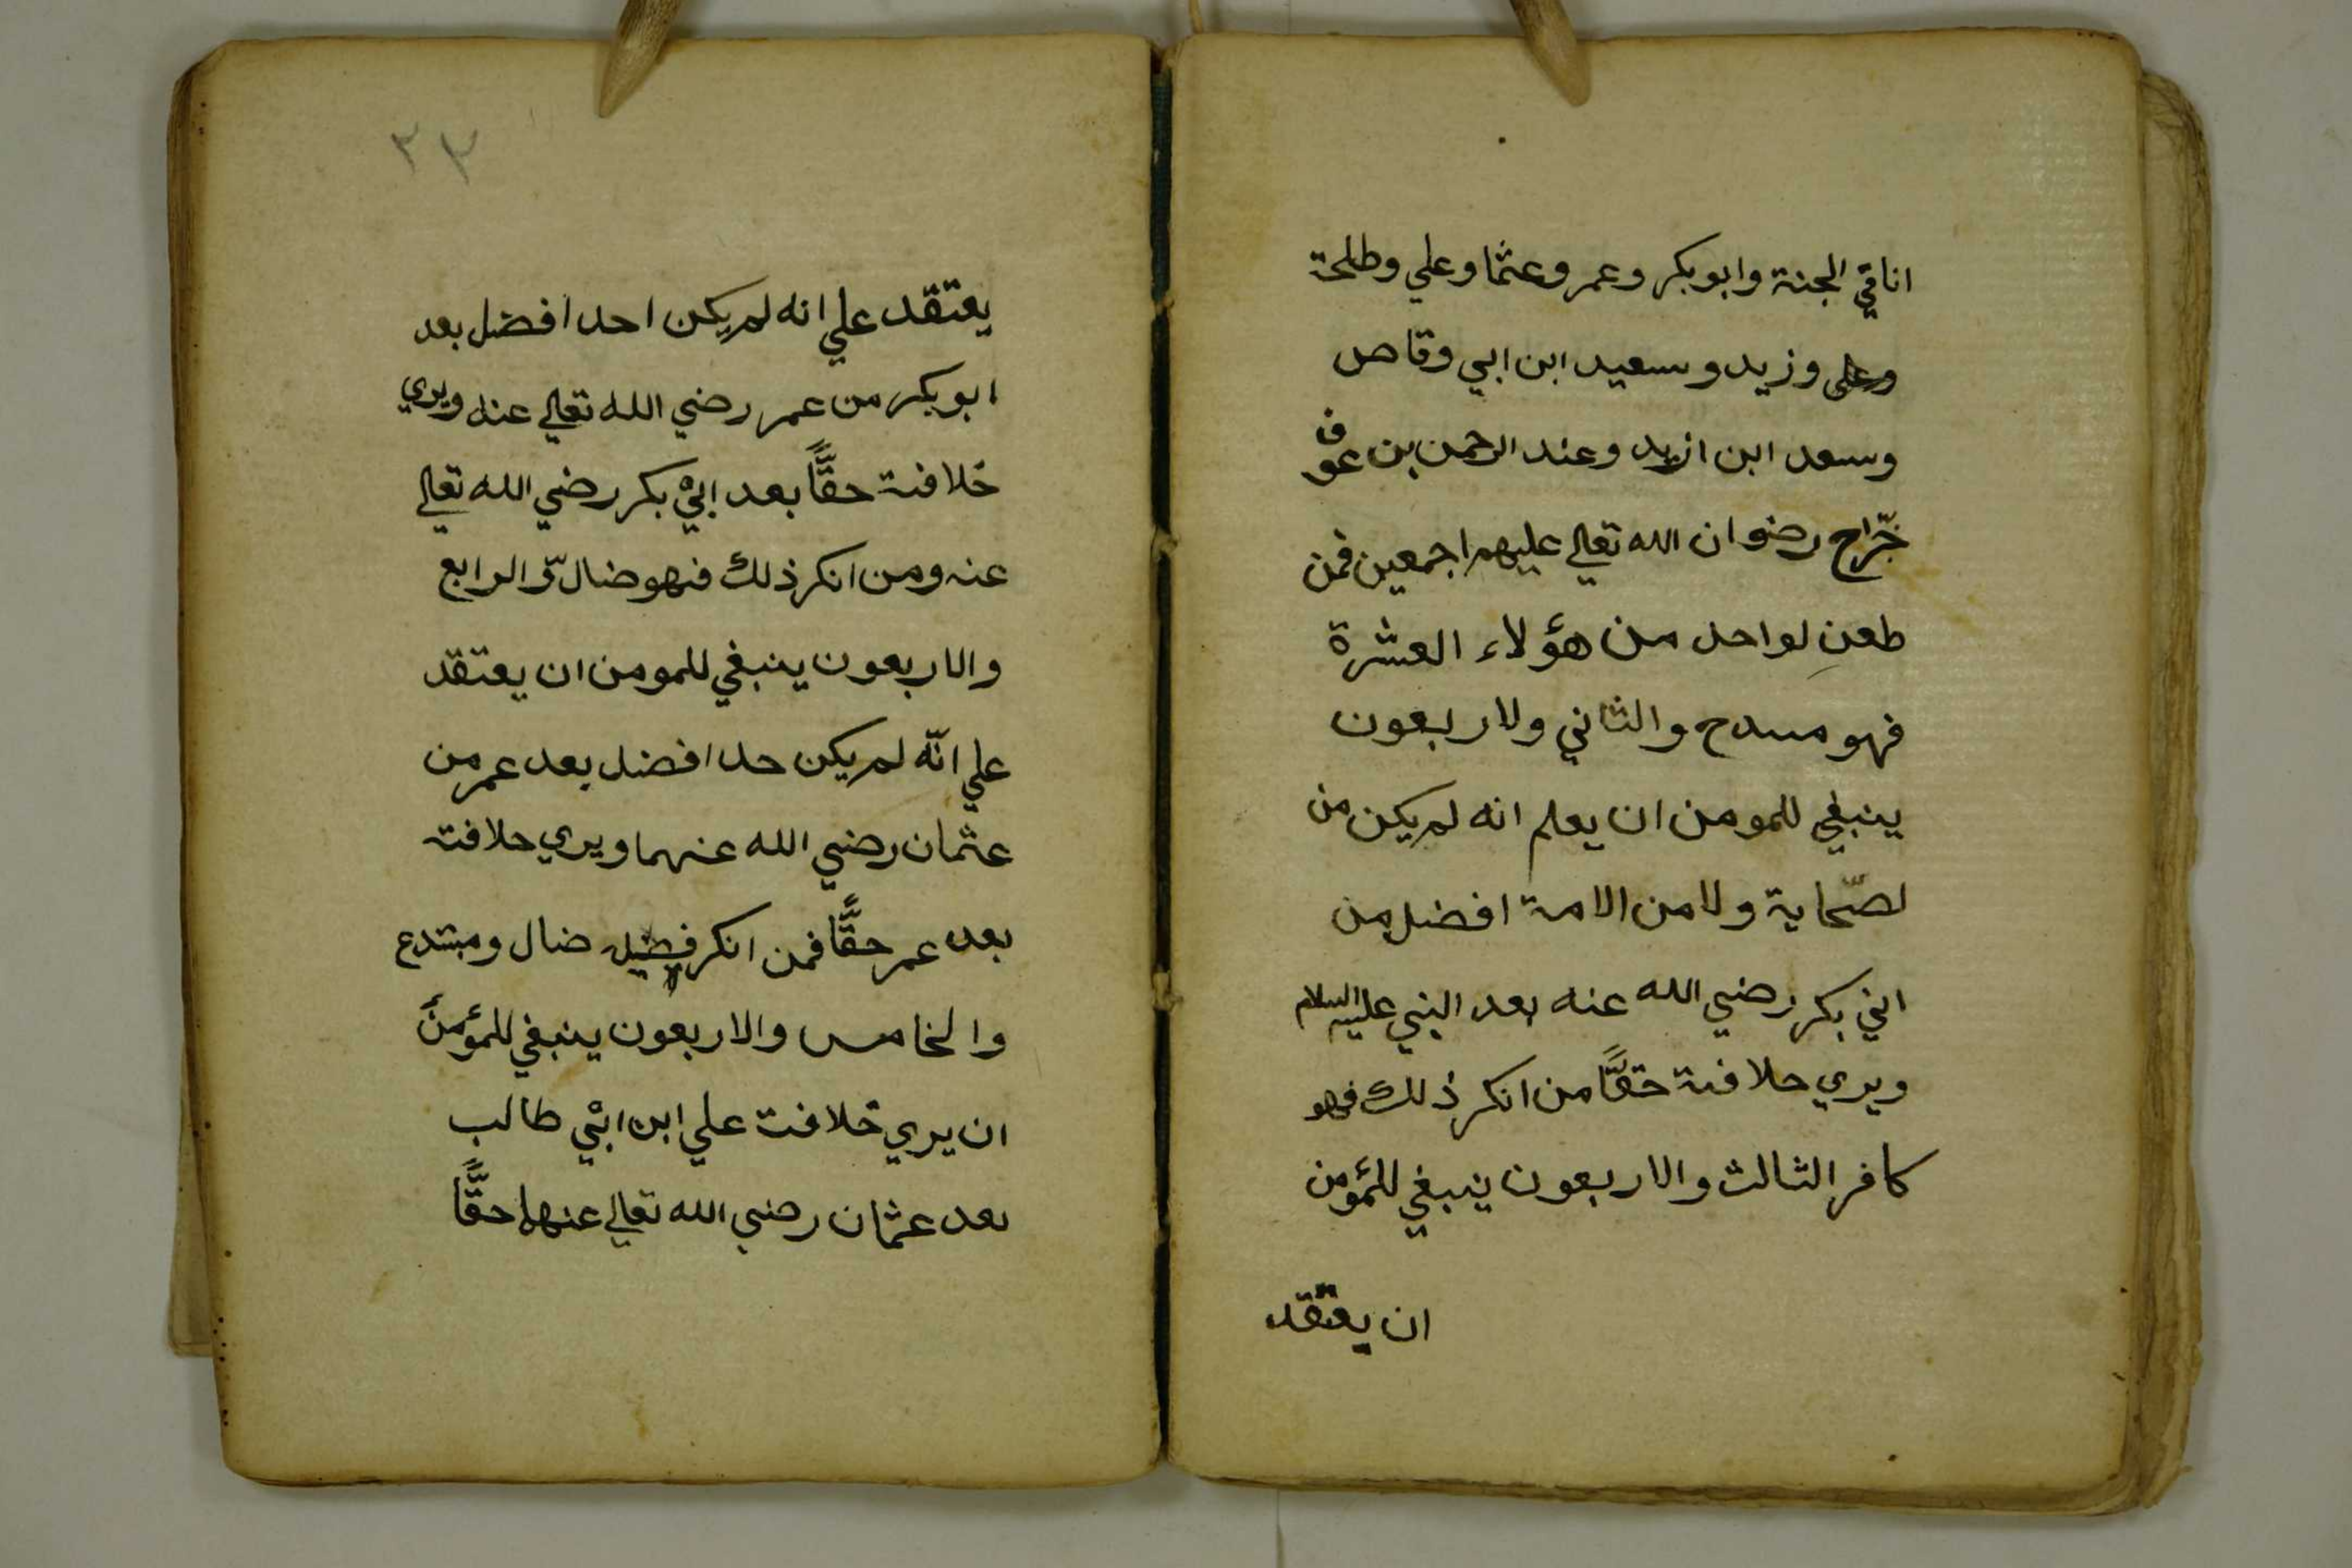 انا في الجنة وابو بكر وعمر وعثما وعلي وطلحة
وعلى وزيد وسعيد ابن ابي وقاص
وسعد ابن ازيد وعند الرحمن بن عوف
جّراح رضوان الله تعالي عليهم اجمعين فمن
طعن لواحد من هؤلاء العشرة
فهو مسدح والثاني ولاربعون
ينبغي للمومن ان يعلم انه لم يكن من
لصّحابة ولا من الامة افضل من
ابي بكر رضي الله عنه بعد النبي عليه السلام
ويري حلافة حقًّا من انكر ذلك فهو
كافر الثالث والاربعون ينبغي للمؤمن
ان يعتقد
٢٣
يعتقد علي انه لم يكن احد افضل بعد
ابو بكر من عمر رضي الله تعالي عنه ويري
خلافة حقًّا بعد ابيْ بكر رضي الله تعالي
عنه ومن انكر ذلك فهو ضالّ والرابع
والاربعون ينبغي للمومن ان يعتقد
علي انّه لم يكن حد افضل بعد عمر من
عثمان رضي الله عنهما ويري حلافته
بعد عمر حقًّا فمن انكر ضال ومبتدع
والخامس والاربعون ينبغي للمؤمن
ان يري خلافت علي ابن ابيْ طالب
بعد عثمان رضي الله تعالي عنهما حقًّا